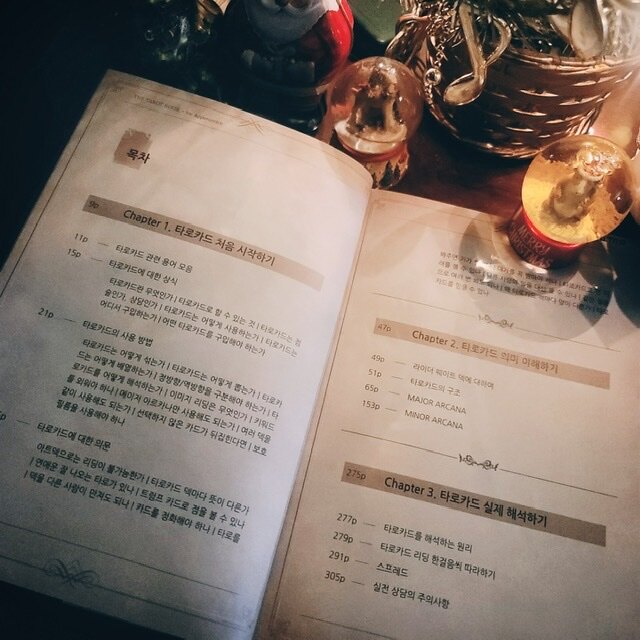 THE TAROT GUIDE
목차
9p Chapter 1. 타로카드 처음 시작하기
11p 타로카드 관련 용어 모음
15p 타로카드에 대한 상식
타로카드란 무엇인가 | 타로카드로 할 수 있는 것 | 타로카드는 점
술인가 상담인가 | 타로카드는 어떻게 사용하는가 | 타로카드는
어디서 구입하는가 | 어떤 타로카드를 구입해야 하는가
21p 타로카드의 사용 방법
타로카드는 어떻게 섞는가 | 타로카드는 어떻게 뽑는가 | 타로카
드는 어떻게 배열하는가 | 정방향/역방향을 구분해야 하는가 | 타
로카드를 어떻게 해석하는가 | 이미지 리딩은 무엇인가 | 키워드
를 외워야 하나 | 메이저 아르카나만 사용해도 되는가 | 여러 덱을
같이 사용해도 되는가 | 선택하지 않은 카드가 뒤집힌다면 | 보호
필름을 사용해야 하나
타로카드에 대한 의문
아트덱으로는 리딩이 불가능한가 | 타로카드 덱마다 뜻이 다른가
| 연애운 잘 나오는 타로가 있나 | 트럼프 카드로 점을 볼 수 있나
| 덱을 다른 사람이 만져도 되나 | 카드를 정화해야 하나 | 타로를
47p Chapter 2. 타로카드 의미 이해하기
49p 라이더 웨이트 덱에 대하여
51p 타로카드의 구조
65p MAJOR ARCANA
153p MINOR ARCANA
275p Chapter 3. 타로카드 실제 해석하기
277p 타로카드를 해석하는 원리
279p 타로카드 리딩 한걸음씩 따라하기
291p 스프레드
305p 실전 상담의 주의사항